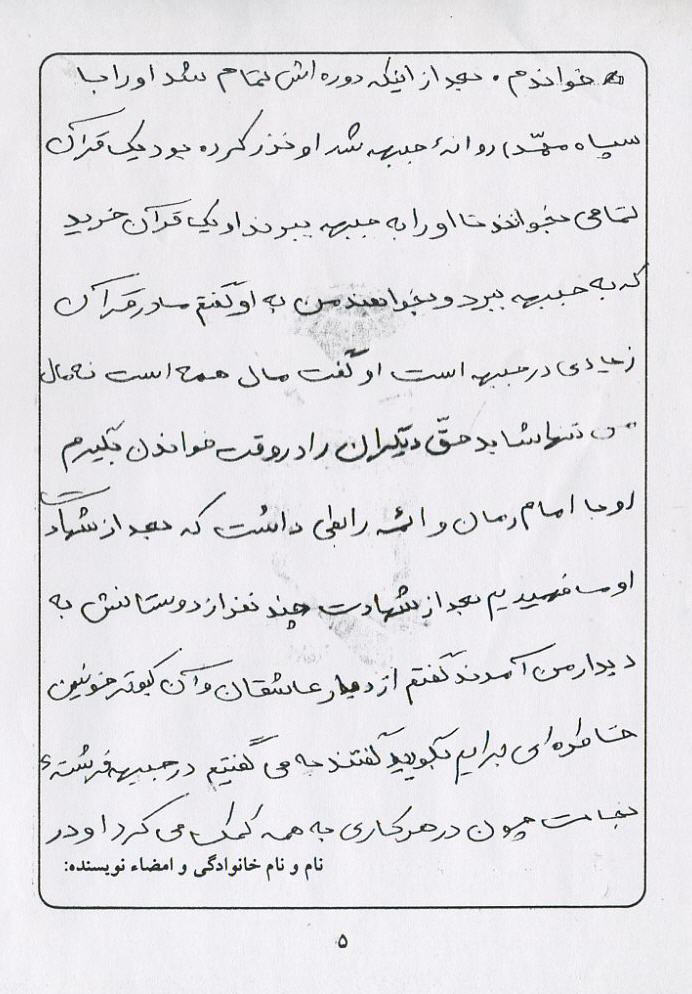 خواندم . بعد از اینکه دوره اش تمام شد او را با
سپاه محمد) روانهٔ جبهه شد او نذر کرده بود یک قرآن
تمامی بخواند تا او را به جبهه ببرند او یک قرآن خرید
که به جبهه ببرد و بخواند من به او گفتم مادر قرآن
زیادی در جبهه است او گفت مال همه است نه مال
من تنها شاید حقّ دیگران را در وقت خواندن بگیرم
او با امام زمان و ائمه رابطی داشت که بعد از شهادت
او ما فهمیدیم بعد از شهادت چند نفر از دوستانش به
دیدار من آمدند گفتم از دیار عاشقان و آن کبوتر خونین
خاطره ای برایم بگویید گفتند چه می گفتیم در جبهه فرشتهٔ
نجات چون در هر کاری به همه کمک می کرد او در
نام و نام خانوادگی و امضاء نویسنده:
۵